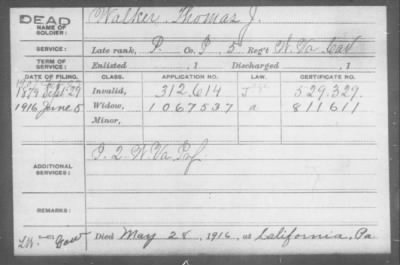 DEAD
NAME OF SOLDIER: Walker, Thomas J.
SERVICE: Late rank, P Co. I 5 Reg't W. Va Cav
TERM OF SERVICE: Enlisted , 1 Discharged , 1
DATE OF FILING. CLASS. APPLICATION NO. LAW. CERTIFICATE NO.
1879 Sept 29 Invalid, 312,614 529,329.
1916 June 5 Widow, 1067537 a 811611
Minor,
ADDITIONAL SERVICES: I. 2 W Va Inf
REMARKS:
Died May 28, 1916, at California, Pa.